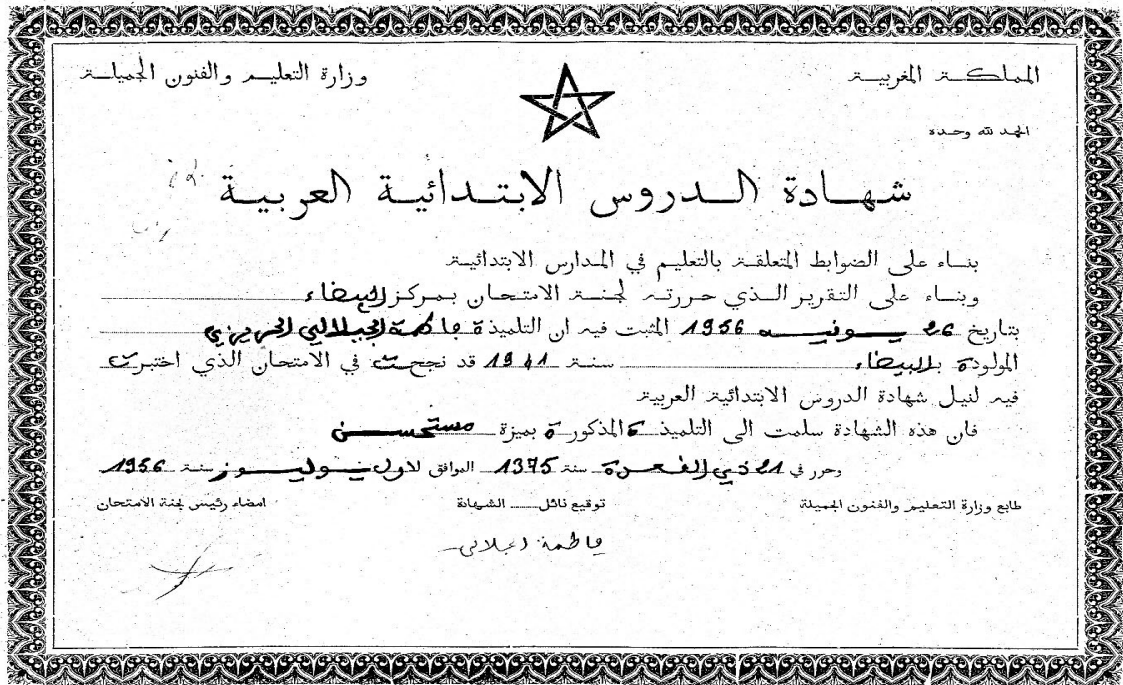 المملكة المغربية
وزارة التعليم والفنون الجميلة
الحمد لله وحده
شهادة الدروس الابتدائية العربية
بناء على الضوابط المتعلقة بالتعليم في المدارس الابتدائية
وبناء على التقرير الذي حررته لجنة الامتحان بمركز البيضاء
بتاريخ 26 يونيه 1956 المثبت فيه ان التلميذة فاطمة الجيلالي الحريزي
المولودة بالبيضاء سنة 1941 قد نجحت في الامتحان الذي اختبرت
فيه لنيل شهادة الدروس الابتدائية العربية
فان هذه الشهادة سلمت الى التلميذة المذكورة بميزة مستحسن
وحرر في 21 ذي القعدة سنة 1375 الموافق لاول يوليوز سنة 1956
طابع وزارة التعليم والفنون الجميلة
توقيع نائل الشهادة
امضاء رئيس لجنة الامتحان
فاطمة الجلالي